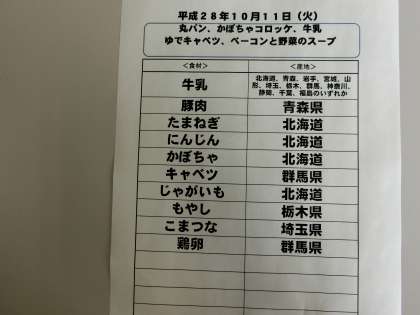 平成28年10月11日（火）
丸パン、かぼちゃコロッケ、牛乳
ゆでキャベツ、ベーコンと野菜のスープ
＜食材＞ ＜産地＞
牛乳 北海道、青森、岩手、宮城、山
形、埼玉、栃木、群馬、神奈川、
静岡、千葉、福島のいずれか
豚肉 青森県
たまねぎ 北海道
にんじん 北海道
かぼちゃ 北海道
キャベツ 群馬県
じゃがいも 北海道
もやし 栃木県
こまつな 埼玉県
鶏卵 群馬県